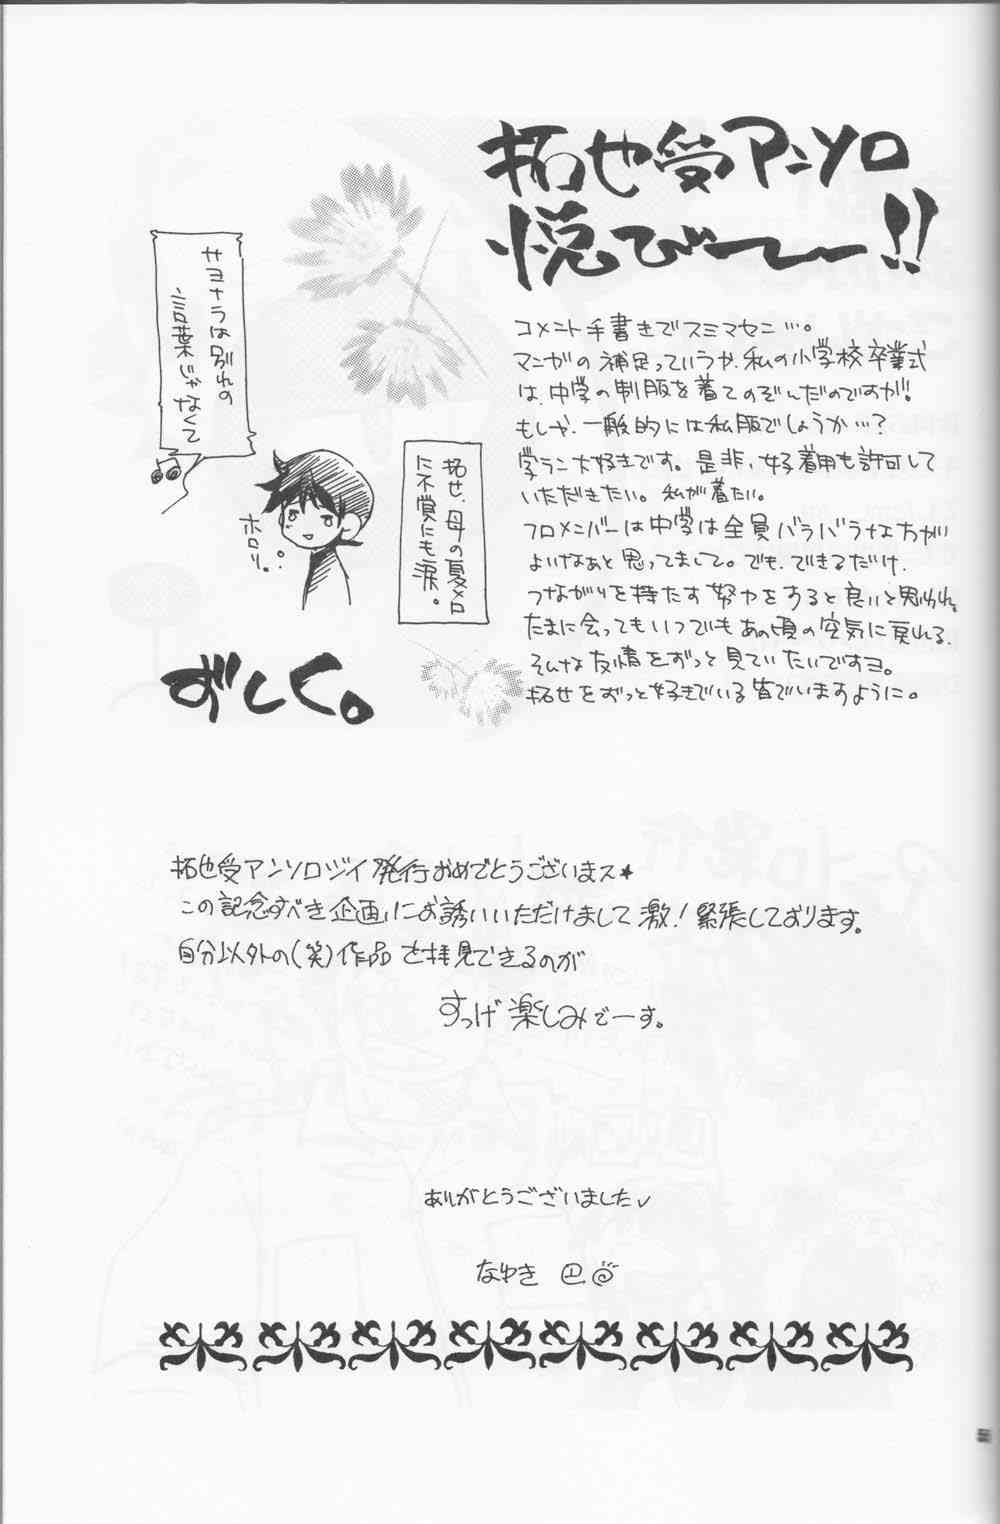 拓也受アンソロ
悦びーー!!
コメント手書きでスミマセン…。
マンガの補足っていうか、私の小学校卒業式
は、中学の制服を着てのぞんだのですが。
もしや、一般的には私服でしょうか…?
学ラン大好きです。是非、女子着用も許可して
いただきたい。私が着たい。
フロメンバーは中学は全員バラバラな方が
よいなぁと思ってまして。でも、できるだけ、
つながりを持たす努力をすると良いと思われ。
たまに会ってもいつでもあの頃の空気に戻れる、
そんな友情をずっと見ていたいですヨ。
拓也をずっと好きでいる皆でいますように。
サヨナラは別れの
言葉じゃなくて
♫
拓也、母の夏メロ
に不覚にも涙。
ホロリ。
ずしく。
拓也受アンソロジイ発行おめでとうございまス★
この記念すべき企画にお誘いいただけまして激!緊張しております。
自分以外の(笑)作品を拝見できるのが
すっげ楽しみでーす。
ありがとうございました✓
なゆき